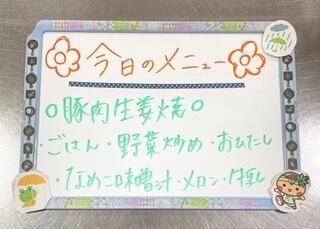 今日のメニュー
○豚肉生姜焼○
・ごはん・野菜炒め・おひたし
・なめこ味噌汁・メロン・付推し